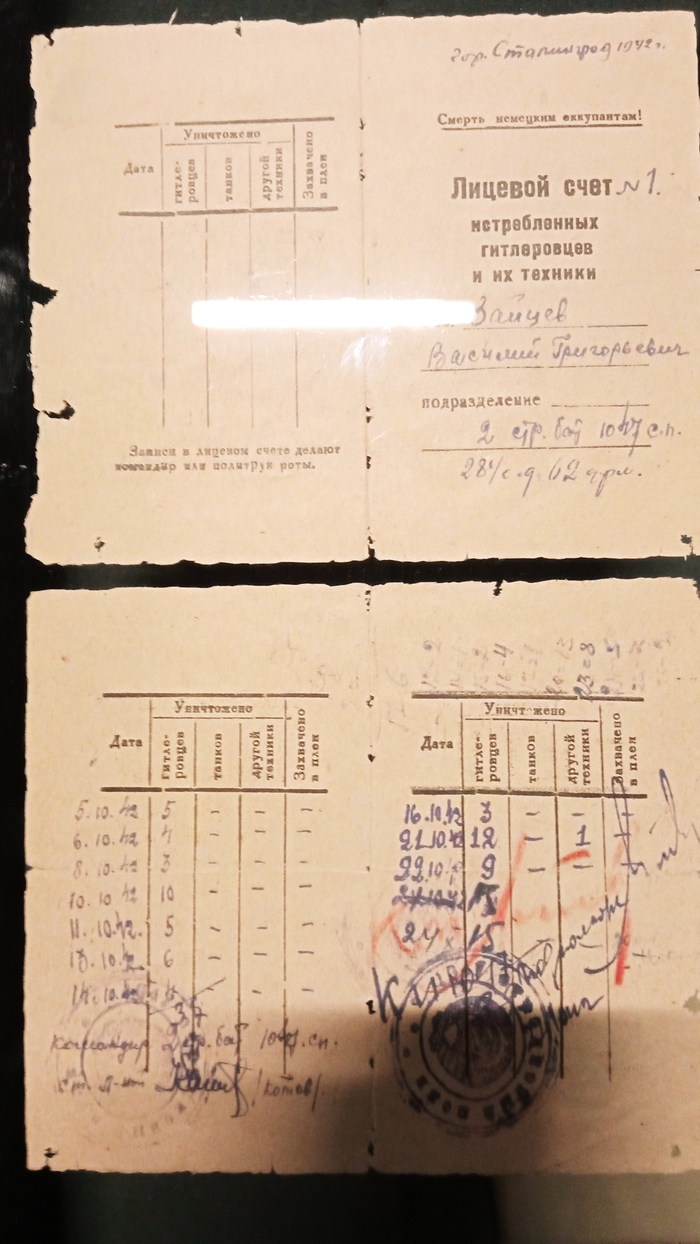 гор. Сталинград 1942 г.
Смерть немецким оккупантам!
Лицевой счет N 1.
истребленных
гитлеровцев
и их техники
Зайцев
Василий Григорьевич
подразделение
2 стр. бат 1047 с.п.
284 с.д. 62 арм.
Дата
Уничтожено
гитле-
ровцев
танков
другой
техники
Захвачено
в плен
Записи в лицевом счете делают
командир или политрук роты.
Дата
Уничтожено
гитле-
ровцев
танков
другой
техники
Захвачено
в плен
5.10.42 5 – – –
6.10.42 4 – – –
8.10.42 3 – – –
10.10.42 10 – – –
11.10.42. 5 – – –
13.10.42. 6 – – –
14.10.42 4 – –
37
Командир 2 стр. бат 1047 сп.
ст. л-нт /Котов/.
16-4
23=8
Дата
Уничтожено
гитле-
ровцев
танков
другой
техники
Захвачено
в плен
16.10.42 3 – – –
21.10.42 12 – 1 –
22.10.42 9 – – –
24 15